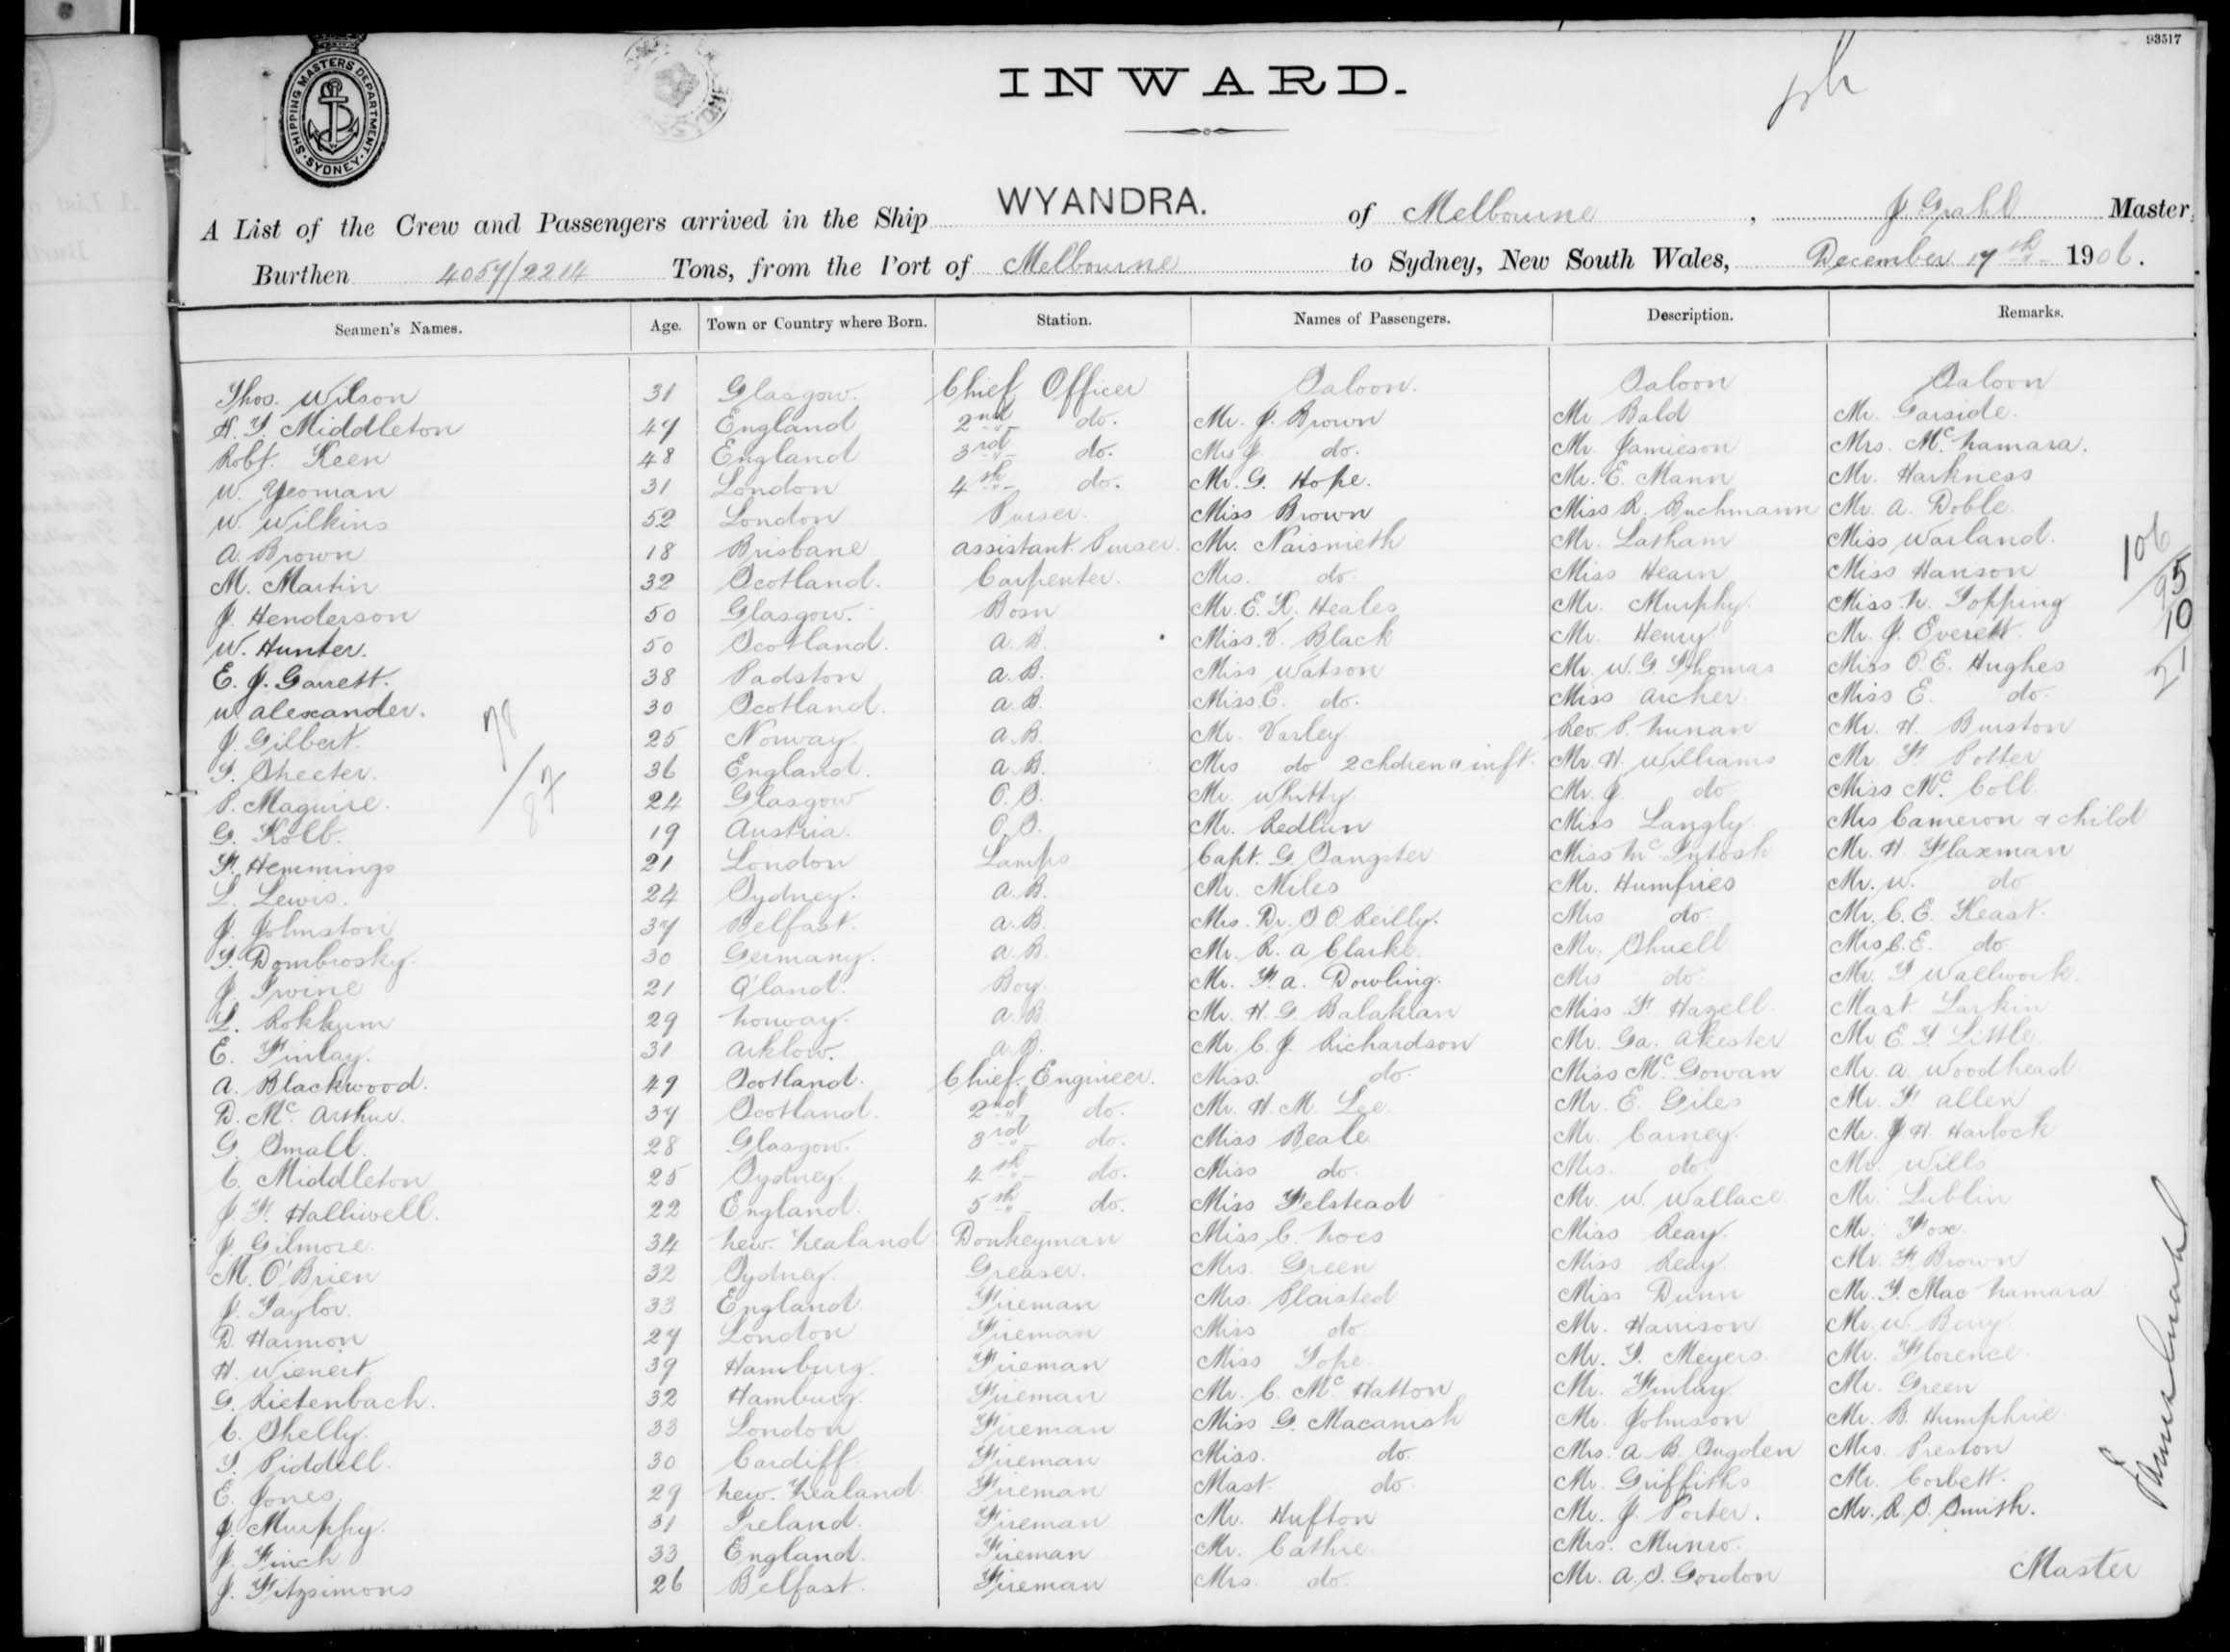 93517
SHIPPING MASTERS DEPARTMENT. SYDNEY.
INWARD.
A List of the Crew and Passengers arrived in the Ship WYANDRA. of Melbourne, J. Grahl Master,
Burthen 4057/2214 Tons, from the Port of Melbourne to Sydney, New South Wales, December 17th 1906.
Seamen's Names. Age. Town or Country where Born. Station. Names of Passengers. Description. Remarks.
Thos. Wilson 31 Glasgow. Chief Officer Saloon. Saloon Saloon
H. T. Middleton 47 England 2nd do. Mr. J. Brown Mr Bald Mr. Garside.
Robt. Keen 48 England 3rd do. Mrs J. do. Mr. Jamieson Mrs. McNamara.
W. Yeoman 31 London 4th do. Mr. G. Hope. Mr. E. Mann Mr. Harkness
W. Wilkins 52 London Purser. Miss Brown Miss R. Buchmann Mr. A. Doble.
A. Brown 18 Brisbane Assistant Purser. Mr. Naismieth Mr. Latham Miss Warland.
M. Martin 32 Scotland. Carpenter. Mrs. do Miss Hearn Miss Hanson
J. Henderson 50 Glasgow. Bosn Mr. E. K. Heales Mr. Murphy Miss N. Topping
W. Hunter. 50 Scotland. A. B. Miss. V. Black Mr. Henry Mr. J. Everett
E. J. Garrett. 38 Padston A. B. Miss Watson Mr. W. G. Thomas Miss O. E. Hughes
W. Alexander. 30 Scotland. A. B. Miss. E. do. Miss Archer. Miss E. do.
J. Gilbert. 25 Norway. A. B. Mr. Varley Rev. P. Nunan Mr. H. Burston
T. 36 England. A. B. Mrs do 2 chdren & inft. Mr. H. Williams Mr. F. Potter
P. Maguire. 24 Glasgow O. S. Mr. Whitty. Mr. J. do Miss McColl.
G. Kolb. 19 Austria. O. S. Mr. Redlun Miss Langly Mrs Cameron & child
F. Hemmings 21 London Lamps Capt. G. Sangster Miss McIntosh Mr. H. Flaxman
L. Lewis. 24 Sydney. A. B. Mr. Miles Mr. Humfries Mr. W. do
J. Johnston 37 Belfast. A. B. Mrs. Dr. O'Reilly. Mrs do. Mr. C. E. Keast.
T. Dombrosky. 30 Germany. A. B. Mr. R. A Clarke. Mr. Mrs C. E. do
J. Irvine 21 Q'land. Boy. Mr. F. A. Dowling. Mrs do. Mr. T Wallwork.
L. Rokkum 29 Norway. A. B. Mr. H. G. Balakian Miss F. Hazell Mast Larkin
E. Finlay. 31 Arklow. A. B. Mr. C. J. Richardson Mr. Ga. Akester Mr E. T. Little
A. Blackwood. 49 Scotland. Chief. Engineer. Miss. do. Miss McGowan Mr. A. Woodhead
D. McArthur. 37 Scotland. 2nd do. Mr. H. M. Lee Mr. E. Giles Mr. F Allen
G. Small. 28 Glasgow. 3rd do. Miss Beale. Mr. Carney. Mr. J H. Harlock
C. Middleton 25 Sydney. 4th do. Miss do. Mrs. do. Mr. Wills
J. F. Halliwell. 22 England. 5th do. Miss Felstead Mr. W. Wallace Mr. Lublin
J. Gilmore. 34 New. Zealand Donkeyman Miss. C. Noes Miss Reay. Mr. Fox.
M. O'Brien 32 Sydney. Greaser. Mrs. Green Miss Reay. Mr. F. Brown
J. Taylor. 33 England. Fireman Mrs. Plaisted Miss Dunn Mr. T. MacNamara
D. Harmon 27 London Fireman Miss do Mr. Harrison Mr. W. Berry
H. Wienert 39 Hamburg. Fireman Miss Tope. Mr. T. Meyers. Mr. Florence.
G. Rietenbach. 32 Hamburg. Fireman Mr. C. McHatton Mr. Finlay Mr. Green
C. Shelly. 33 London Fireman Miss G. Macanish Mr. Johnson Mr. B. Humphrie
T. Piddell. 30 Cardiff. Fireman Miss. do. Mrs. A B. Sugden Mrs. Preston
E. Jones. 29 New. Zealand Fireman Mast do Mr. Griffiths Mr. Corbett.
J. Murphy. 31 Ireland. Fireman Mr. Hufton Mr. J. Porter. Mr. R. S. Smith.
J. Finch 33 England. Fireman Mr. Cathie. Mrs. Munro.
J. Fitzsimons 26 Belfast. Fireman Mrs. do. Mr. A. S. Gordon
78/87
106/95
10
Master